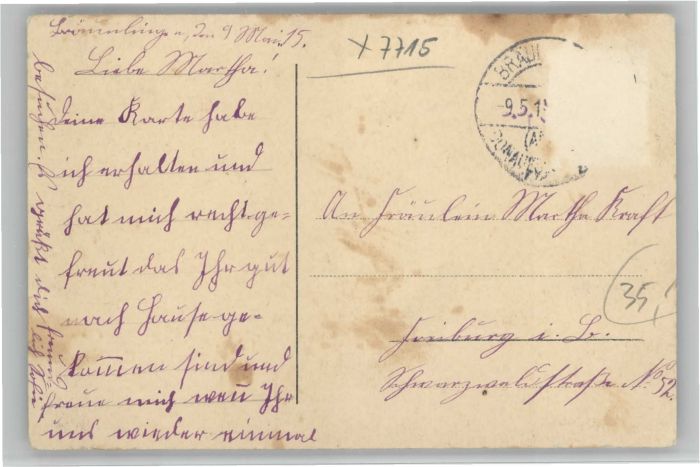 Bräunlingen, den 9 Mai 15.
Liebe Martha!
Deine Karte habe
ich erhalten und
hat mich recht ge=
freut das Ihr gut
nach Hause ge=
kommen sind und
freue mich wen Ihr
uns wieder einmal
besuchen. Es grüßt dich
X 7715
BRÄUN
-9.5.15
DONAU
An Fräulein Martha Kraft
Freiburg i. B.
Schwarzwaldstraße No 52.
35,